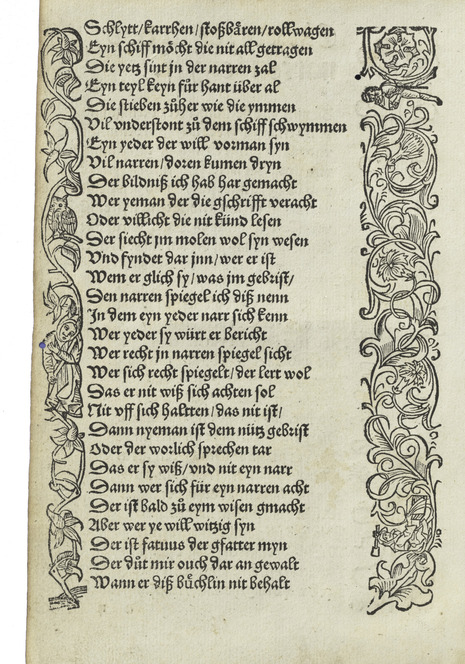 Schlytt/karrhen/stoßbären/rollwagen
Eyn schiff möcht die nit all getragen
Die yetz sint jn der narren zal
Eyn teyl keyn für hant über al
Die stieben züher wie die ymmen
Vil vnderstont zů dem schiff schwymmen
Eyn yeder der will vorman syn
Vil narren/doren kumen dryn
Der bildniß ich hab har gemacht
Wer yeman der die gschrifft veracht
Oder villicht die nit künd lesen
Der siecht jm molen wol syn wesen
Vnd fyndet dar jnn/wer er ist
Wem er glich sy/was jm gebrist/
Den narren spiegel ich diß nenn
Jn dem eyn yeder narr sich kenn
Wer yeder sy würt er bericht
Wer recht jn narren spiegel sicht
Wer sich recht spiegelt/der lert wol
Das er nit wiß sich achten sol
Nit vff sich haltten/das nit ist/
Dann nyeman ist dem nütz gebrist
Oder der worlich sprechen tar
Das er sy wiß/vnd nit eyn narr
Dann wer sich für eyn narren acht
Der ist bald zů eym wisen gmacht
Aber wer ye will witzig syn
Der ist fatuus der gfatter myn
Der důt mir ouch dar an gewalt
Wann er diß büchlin nit behalt